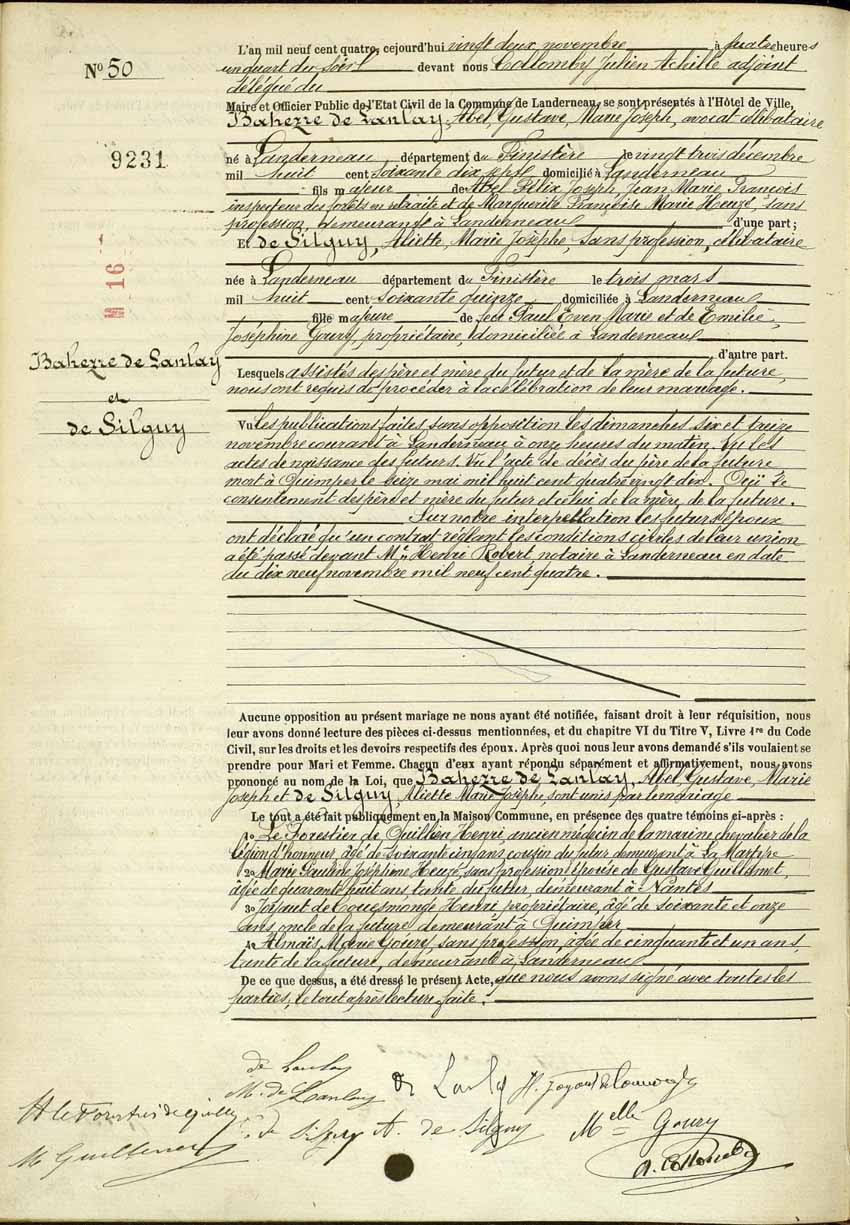 L'an mil neuf cent quatre, cejourd'hui vingt deux novembre à quatre heures
un quart du soir devant nous Collomby Julien Achille adjoint
délégué du
Maire et Officier Public de l'Etat Civil de la Commune de Landerneau, se sont présentés à l'Hôtel de Ville,
Bahezre de Lanlay, Abel, Gustave, Marie Joseph, avocat célibataire
né à Landerneau, département du Finistère le vingt trois décembre
mil huit cent soixante dix sept domicilié à Landerneau
fils majeur de Abel Félix Joseph, Jean Marie François
inspecteur des forêts en retraite et de Marguerite Françoise Marie Heuzé, sans
profession, demeurant à Landerneau d'une part;
Et de Silguy, Aliette, Marie Josèphe, sans profession, célibataire
née à Landerneau département du Finistère le trois mars
mil huit cent soixante quinze domiciliée à Landerneau
fille majeure de feu Paul Even Marie et de Emilie,
Joséphine Goury, propriétaire, domiciliée à Landerneau
d'autre part.
Lesquels assistés des père et mère du futur et de la mère de la future,
nous ont requis de procéder à la célébration de leur mariage.
Vu les publications faites sans opposition les dimanches six et treize
novembre courant à Landerneau à onze heures du matin. Vu les
actes de naissance des futurs. Vu l'acte de décès du père de la future
mort à Quimper le seize mai mil huit cent quatre vingt dix. Ouï le
consentement des père et mère du futur et celui de la mère de la future.
Sur notre interpellation les futurs époux
ont déclaré qu'un contrat réglant les conditions civiles de leur union
a été passé devant Me Henri Robert notaire à Landerneau en date
du dix neuf novembre mil neuf cent quatre.
Aucune opposition au présent mariage ne nous ayant été notifiée, faisant droit à leur réquisition, nous
leur avons donné lecture des pièces ci-dessus mentionnées, et du chapitre VI du Titre V, Livre 1re du Code
Civil, sur les droits et les devoirs respectifs des époux. Après quoi nous leur avons demandé s'ils voulaient se
prendre pour Mari et Femme. Chacun d'eux ayant répondu séparément et affirmativement, nous avons
prononcé au nom de la Loi, que Bahezre de Lanlay, Abel, Gustave, Marie
Joseph et de Silguy, Aliette Marie Josèphe, sont unis par le mariage
Le tout a été fait publiquement en la Maison Commune, en présence des quatre témoins ci-après :
1o Le Forestier de Quillien Henri, ancien médecin de la marine chevalier de la
légion d'honneur, âgé de soixante cinq ans, cousin du futur demeurant à La Martyre
2o Marie Pauline Joséphine Heuzé, sans profession épouse de Gustave
âgée de quarante huit ans, tante du futur, demeurant à Nantes
3o de Couesmonge Henri propriétaire, âgé de soixante et onze
ans, oncle de la future demeurant à Quimper
4o Almaïs, Marie Goury, sans profession, âgée de cinquante et un ans,
tante de la future, demeurant à Landerneau
De ce que dessus, a été dressé le présent Acte, que nous avons signé avec toutes les
parties, le tout après lecture faite.
No 50
9231
16
Bahezre de Lanlay
et
de Silguy
de Lanlay
M. de Lanlay
de Lanlay
H. le Forestier de Quillien
de Silguy A. de Silguy
Melle Goury
A. Collomby